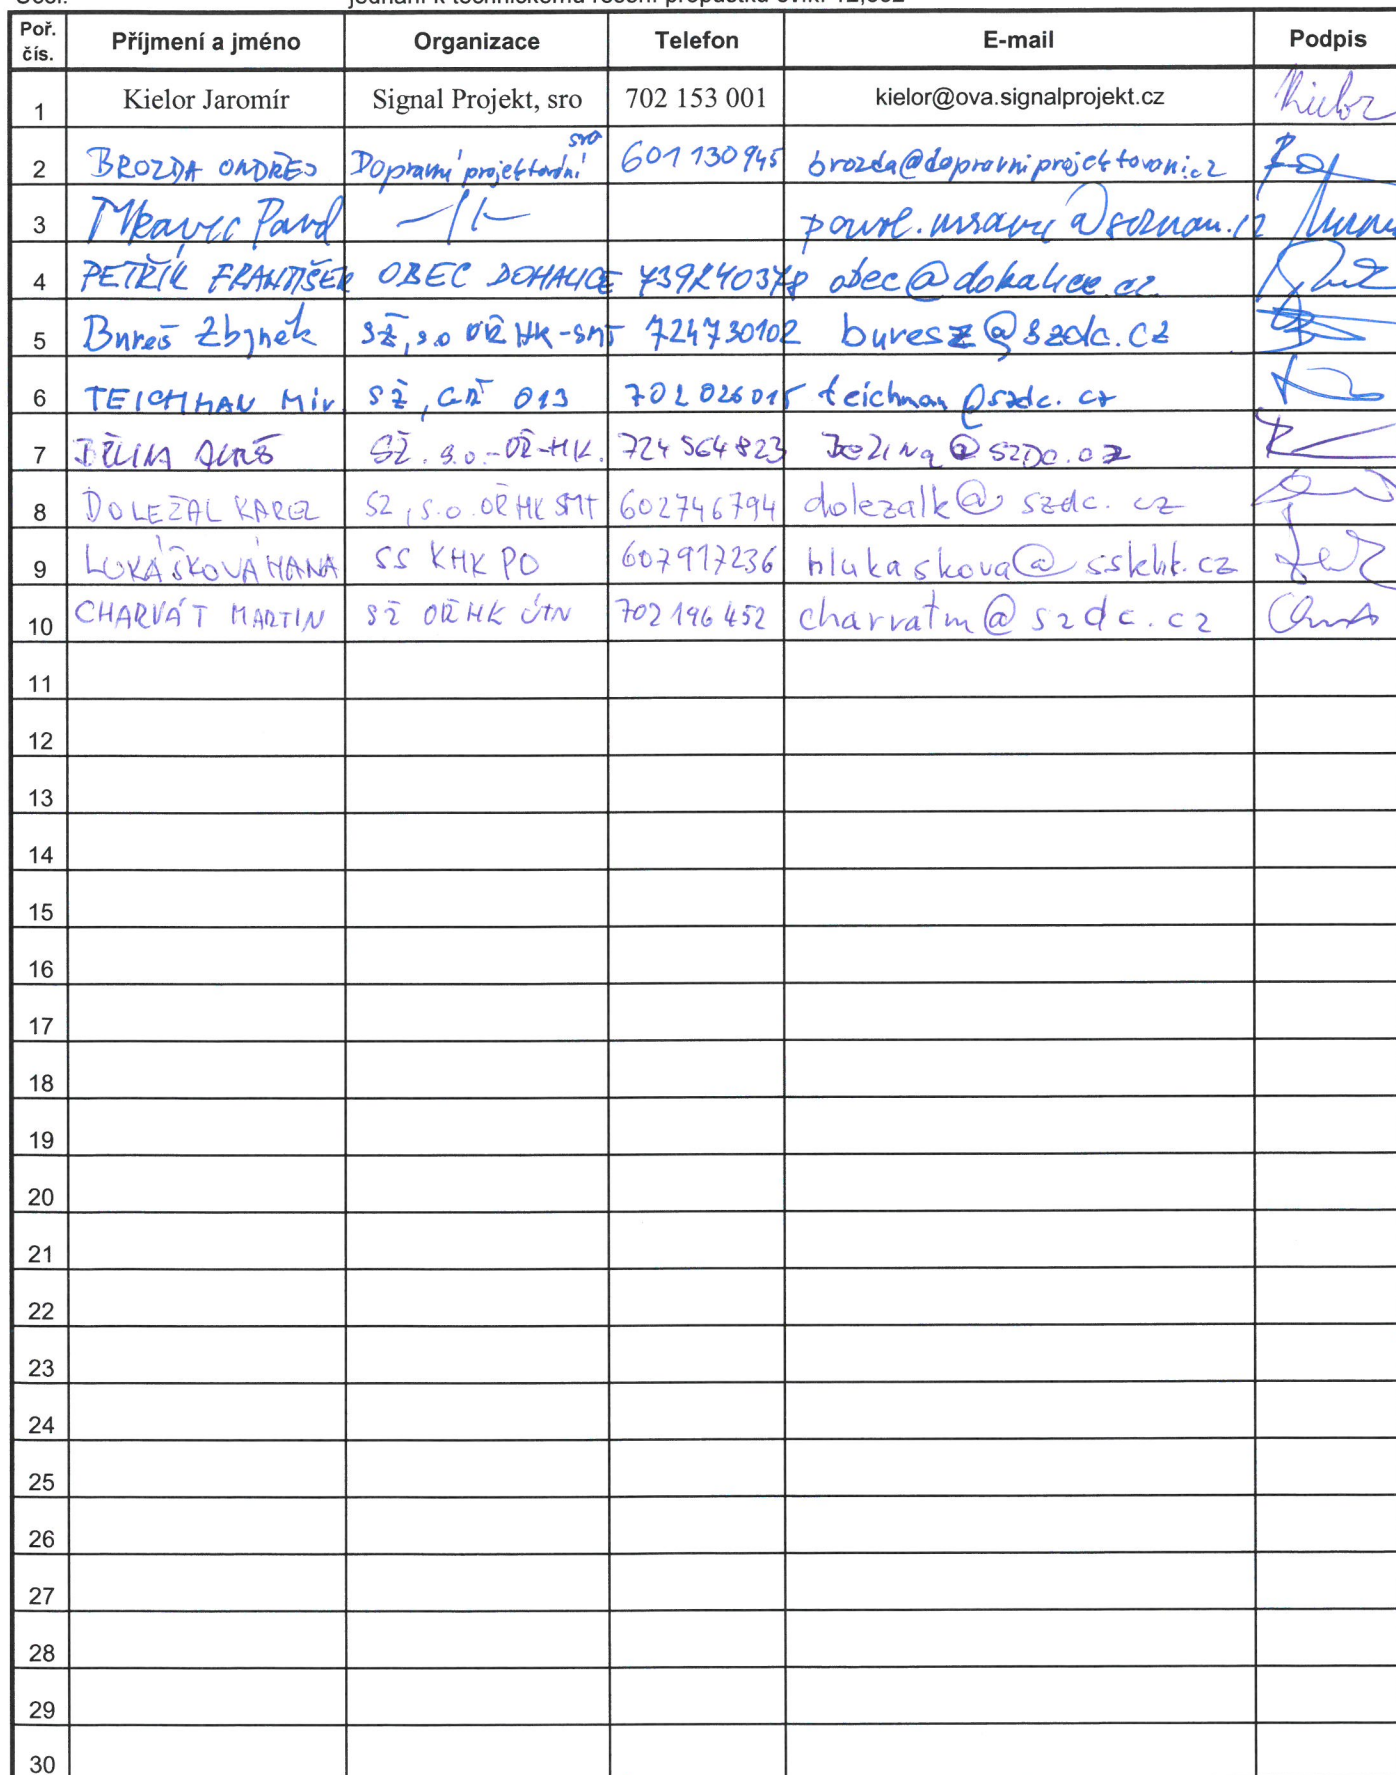 Poř. čís. Příjmení a jméno Organizace Telefon E-mail Podpis
1 Kielor Jaromír Signal Projekt, sro 702 153 001 kielor@ova.signalprojekt.cz Kielor
2 BROZDA ONDŘEJ Dopravní projektování sro 601 130 945 brozda@dopravniprojektovani.cz
3 Mravec Pavel —//— pavel.mravec@seznam.cz
4 PETŘÍK FRANTIŠEK OBEC DOHALICE 739240378 obec@dohalice.cz
5 Bureš Zbyněk SŽ, s.o OŘ HK-SMT 724730102 buresz@szdc.cz
6 TEICHMAN Mir. SŽ, GŘ 013 702 026 015 teichman@szdc.cz
7 ALEŠ SŽ. s.o.-OŘ-HK. 724 564 823
8 DOLEŽAL KAREL SŽ, s.o. OŘ HK SMT 602746794 dolezalk@szdc.cz
9 LUKÁŠKOVÁ HANA SS KHK PO 607917236 hlukaskova@sskhk.cz
10 CHARVÁT MARTIN SŽ OŘ HK ÚTN 702 196 452 charvatm@szdc.cz
11
12
13
14
15
16
17
18
19
20
21
22
23
24
25
26
27
28
29
30